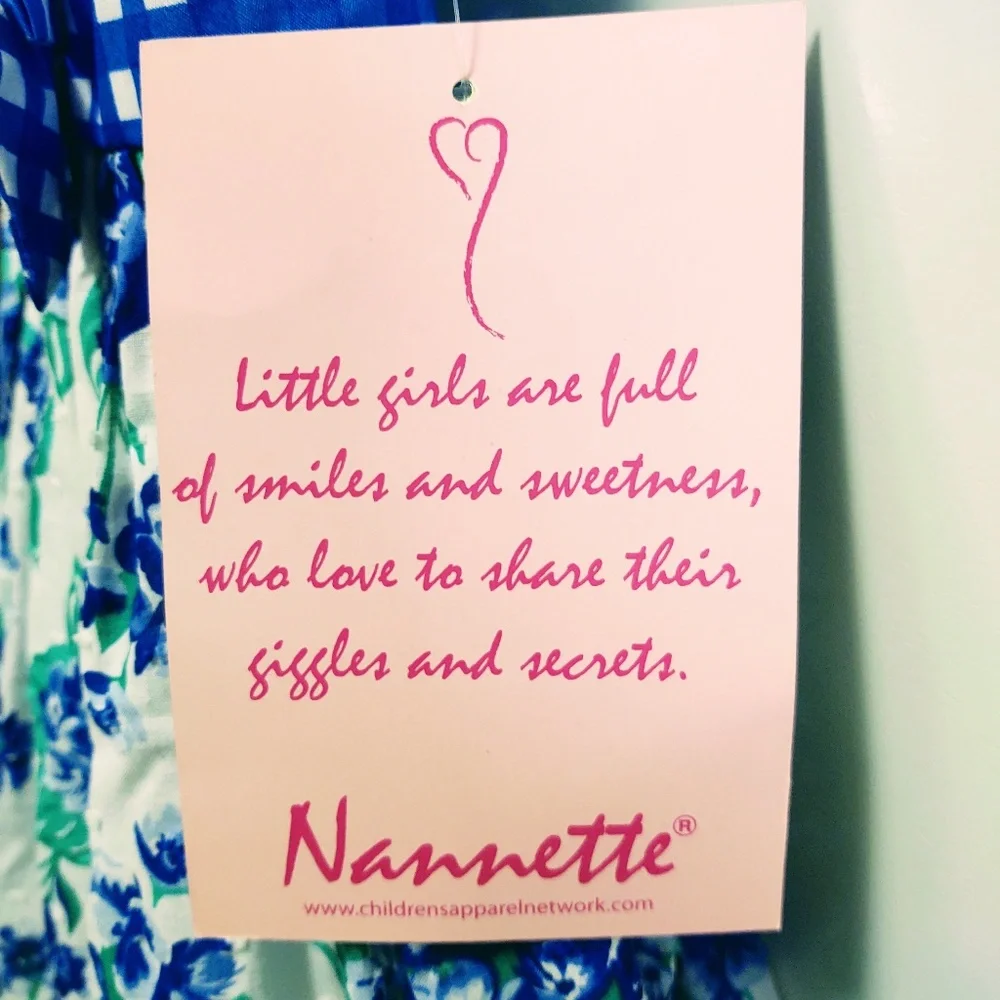 Little girls are full
of smiles and sweetness,
who love to share their
giggles and secrets.
Nannette®
www.childrensapparelnetwork.com